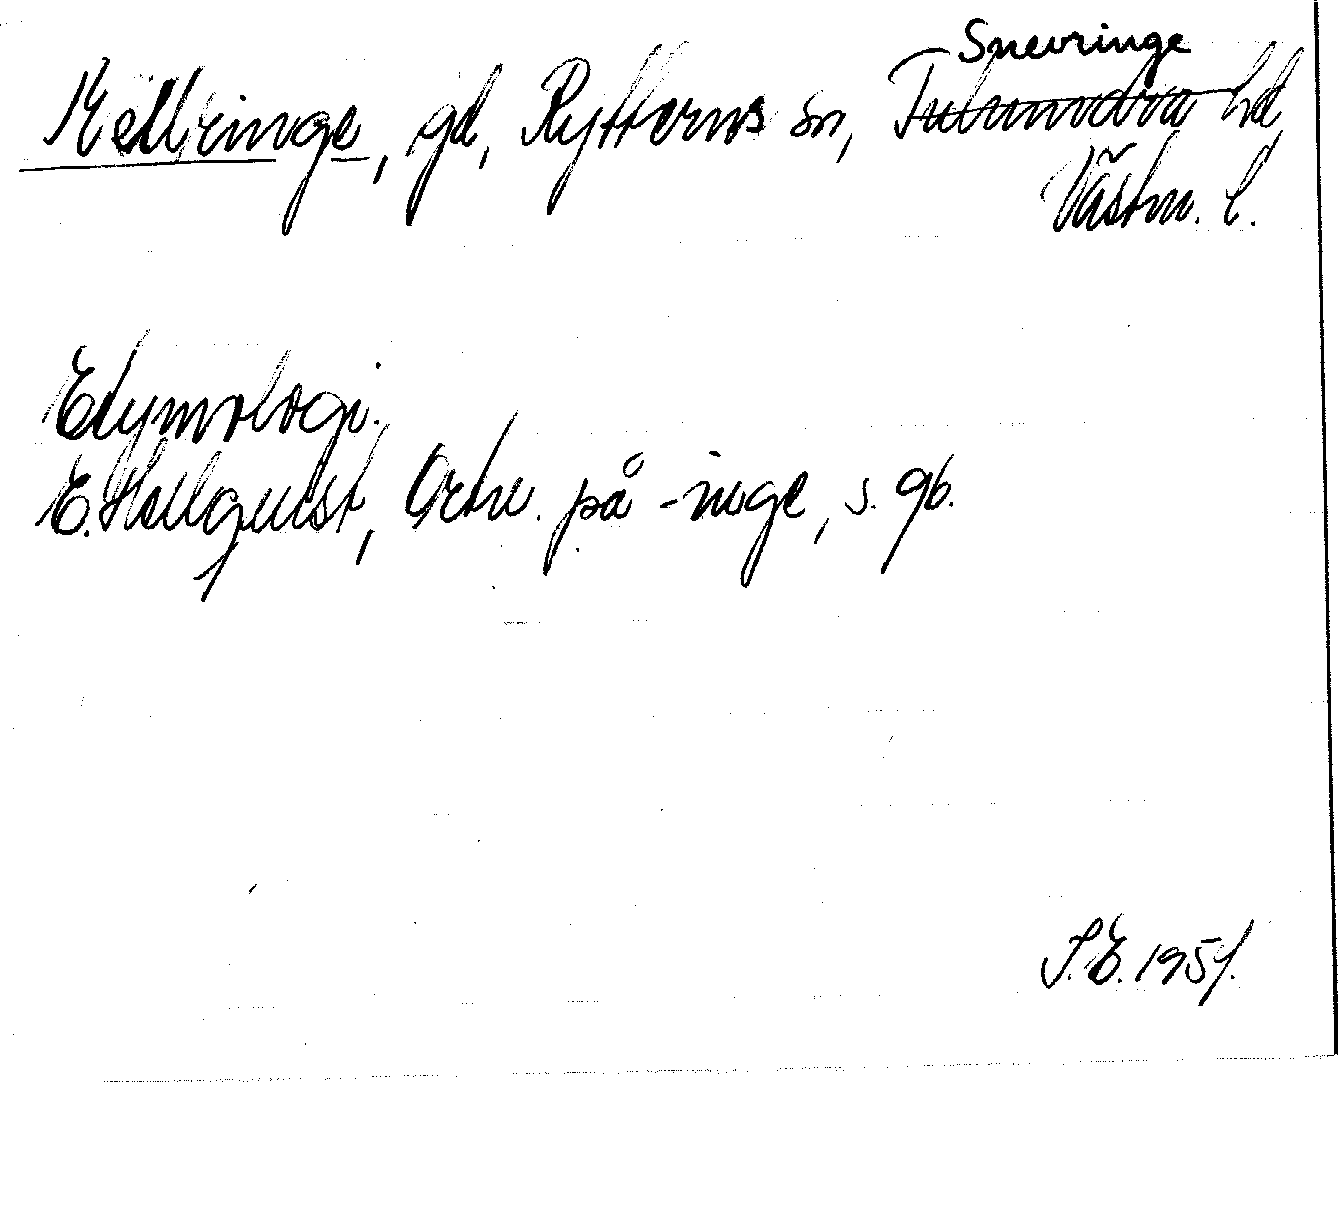 Snevringe
Kellringe, gd, Rytterns sn, Tuhundra hd,
Västm. l.
Etymologi.
E. Hellquist, Ortn. på -inge, s. 96.
S.E. 1951.